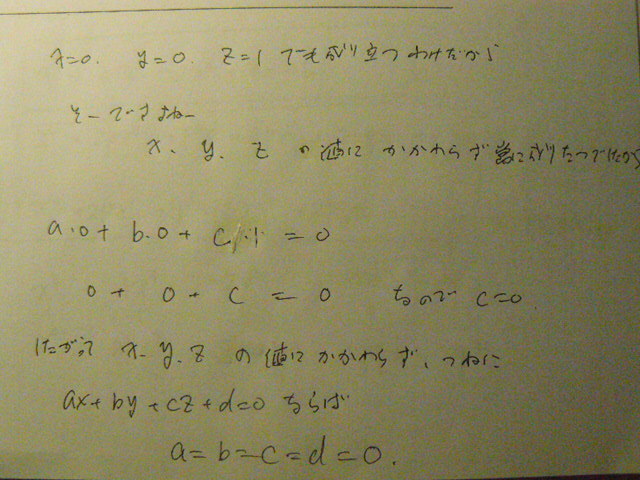 x=0. y=0. z=1 でも成り立つわけだから
そーですねー
x、y、z の値にかかわらず常に成りたつでたから
a·0+ b·0+ c·1 = 0
0 + 0 + c = 0 なので c=0.
したがって x、y、z の値にかかわらず、つねに
ax+by+cz+d=0 ならば
a=b=c=d=0.